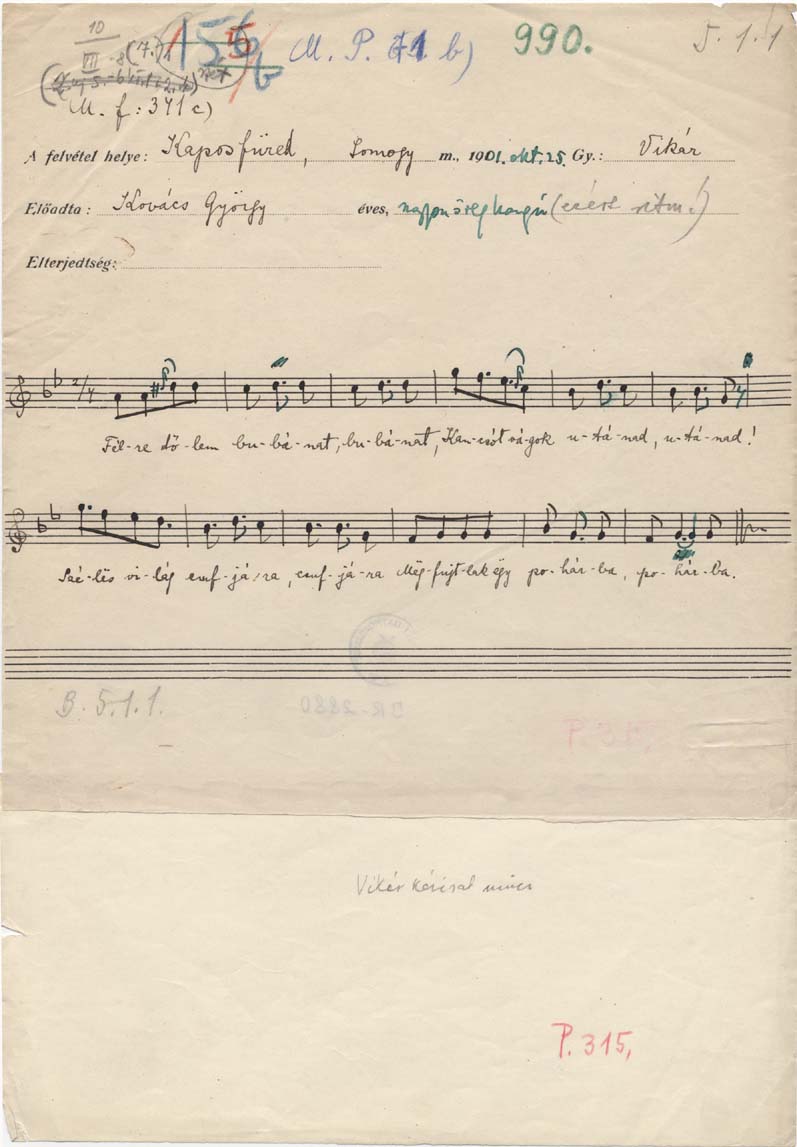 10
VII -8 (7.)
156/b M. P. 71 b) 990. 5.1.1
M. f: 371 c)
A felvétel helye: Kaposfüred, Somogy m., 1901. okt. 25. Gy.: Vikár
Előadta: Kovács György éves, nagyon öreg hangú (ezért ritm!)
Elterjedtség:
2/4
Fél-re dő-lem bu-bá-nat, bu-bá-nat, Kan-csót vá-gok u-tá-nad, u-tá-nad!
Szé-lës vi-lág csuf-já-ra, csuf-já-ra Mëg-fujt-lak ëgy po-hár-ba, po-hár-ba.
B. 5.1.1.
BR-2880
P. 315,
Vikár
nincs
P. 315,